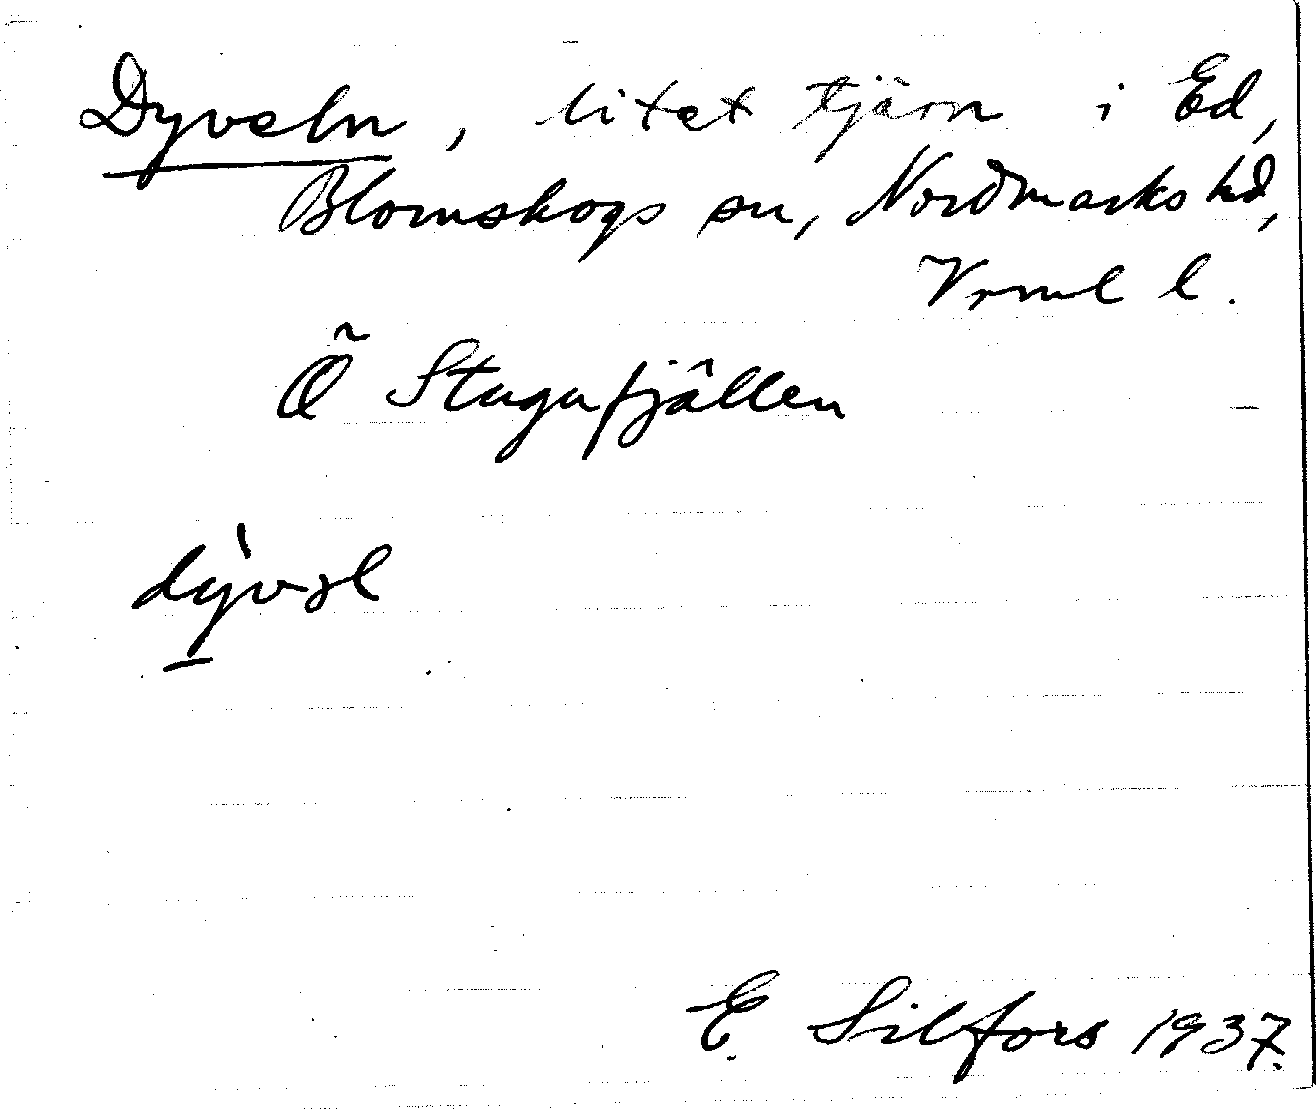 Dyveln, litet tjärn i Ed,
Blomskogs sn, Nordmarks hd,
Vrml l.
Ö Stugufjällen
dỳ̠vəl
E. Silfors 1937.